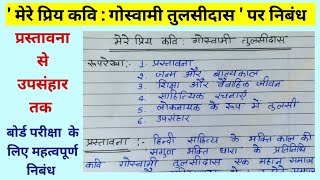 ' मेरे प्रिय कवि : गोस्वामी तुलसीदास ' पर निबंध
प्रस्तावना
से
उपसंहार
तक
बोर्ड परीक्षा के
लिए महत्वपूर्ण
निबंध
मेरे प्रिय कवि : गोस्वामी तुलसीदास
रूपरेखा:- 1. प्रस्तावना
2. जन्म और बाल्यकाल
3. शिक्षा और वैवाहिक जीवन
4. साहित्यिक रचनाएँ
5. लोकनायक के रूप में तुलसी
6. उपसंहार
प्रस्तावना :- हिन्दी साहित्य के भक्ति काल की
सगुण भक्ति धारा के प्रतिनिधि
कवि गोस्वामी तुलसीदास एक महान् समाज